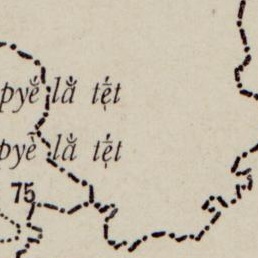 pyĕ́ lắ tẹ́t
pyĕ̀ lắ tẹ́t
75